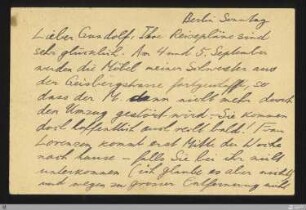 Berlin Sonntag
Lieber Gundolf: Ihre Reisepläne sind
sehr glücklich. Am 4 und 5. September
werden die Möbel meiner Schwester aus
der Geisbergstrasse fortgeschafft, so
dass der M. dann nicht mehr durch
den Umzug gestört wird – Sie kommen
doch hoffentlich auch recht bald! Frau
Lorenzen kommt erst Mitte der Woche
nach hause – falls Sie bei ihr nicht
unterkommen (ich glaube es aber
und wegen zu grosser Entfernung nicht